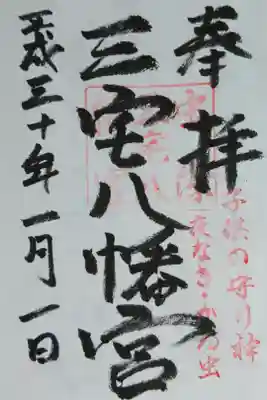 奉拝
子供の守り神
夜なき・かんの虫
三宅八幡宮
平成三十年一月一日